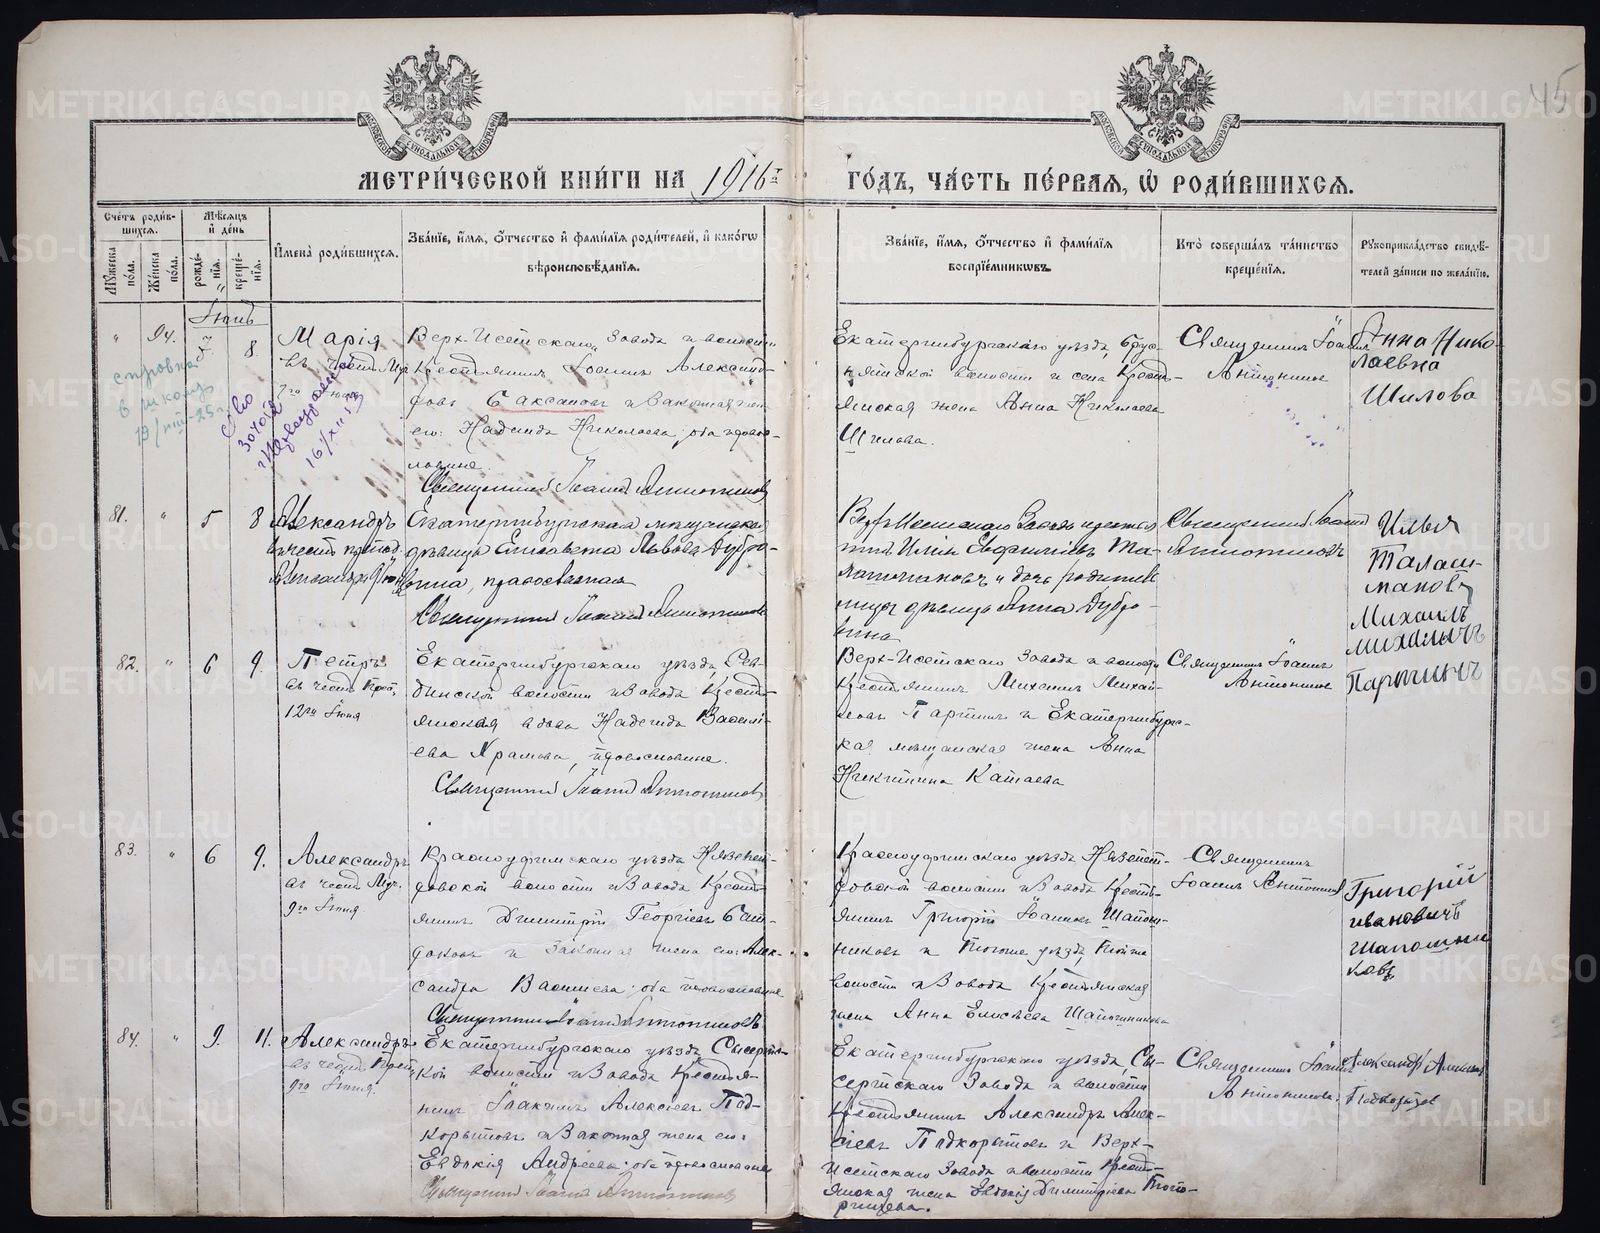 45
МОСКОВСКОЙ СѴНОДАЛЬНОЙ ТИПОГРАФІИ
МОСКОВСКОЙ СѴНОДАЛЬНОЙ ТИПОГРАФІИ
МЕТРИ́ЧЕСКОЙ КНИ́ГИ НА 1916
ГО́ДЪ, ЧА́СТЬ ПЕ́РВАЯ, Ѡ РОДИ́ВШИХСЯ.
Счётъ роди́в-
шихся.
Мѣ́сяцъ
и день
Мꙋжеска
по́ла.
Же́нска
по́ла.
рожде́-
нїя.
креще́-
нїя.
Имена̀ роди́вшихся.
Зва́нїе, и́мя, ѻ́тчество и фами́лїя роди́телей, и како́гѡ
вѣроисповѣ́данїя.
Зва́нїе, и́мя, ѻ́тчество и фами́лїя
воспрїе́мникѡвъ.
Кто̀ соверша́лъ та́инство
креще́нїя.
Рꙋкоприкла́дство свидѣ́-
телей за́писи по жела́нїю.
Іюнь
" 94. 7 8.
Марія
въ честь Мр.
7го Іюня
справка
в школу
19/VIII-25
Св-во
16/XII
Верх-Исетскаго завода и волости
Крестьянинъ Іоаннъ Александ-
ровъ Саксановъ и Законная жена
его: Надежда Николаева; оба право-
славные.
Священникъ Іоаннъ Антониновъ
Екатеринбургскаго уѣзда, Брус-
нятской волости и села Кресть-
янская жена Анна Николаева
Шилова.
Священникъ Іоаннъ
Антониновъ
Анна Нико-
лаевна
Шилова
81. " 5 8
Александръ
въ честь препод.
Александра 9 Іюня
Екатеринбургская мѣщанская
дѣвица Елисавета Львова Дубро-
вина, православная
Священникъ Іоаннъ Антониновъ
Верхъ-Исетскаго Завода
Илія
и дочь
дѣвица Анна Дубро-
вина
Священникъ Іоаннъ
Антониновъ
Илья
Таласи-
мановъ
82. " 6 9.
Петръ
въ честь Преп.
12го Іюня
Екатеринбургскаго уѣзда, Рев-
динской волости и Завода Кресть-
янская вдова Надежда Василі-
ева Храмова, православные.
Священникъ Іоаннъ Антониновъ
Верх-Исетскаго Завода и волости
Крестьянинъ Михаилъ Михай-
ловъ Паргинъ и Екатеринбургс-
кая мѣщанская жена Анна
Никитина Катаева
Священникъ Іоаннъ
Антониновъ
Михаилъ
Михалычъ
83. " 6 9.
Александръ
въ честь Муч.
9го Іюня
Красноуфимскаго уѣзда Нязепет-
ровской волости и Завода Кресть-
янинъ Димитрій Георгіевъ
и Законная жена его: Алек-
сандра Васильева; оба православные
Священникъ Іоаннъ Антониновъ
Красноуфимскаго уѣзда Нязепет-
ровской волости и Завода Кресть-
янинъ Григорій Іоанновъ Шапош-
никовъ и Тогоже уѣзда,
волости и Завода Крестьянская
жена Анна Елисѣева Шапошникова
Священникъ
Іоаннъ Антониновъ
Григорій
ивановичъ
шапошни
ковъ
84. " 9. 11.
Александръ
въ честь Преп.
9го Іюня.
Екатеринбургскаго уѣзда, Сысертс-
кой волости и Завода Крестья-
нинъ Іоакимъ Алексіевъ Под-
корытовъ и Законная жена его:
Евдокія Андреева; оба православные
Священникъ Іоаннъ Антониновъ
Екатеринбургскаго уѣзда, Сы-
сертскаго Завода и волости
Крестьянинъ Александръ Алек-
сіевъ Подкорытовъ и Верх-
Исетскаго Завода и волости Кресть-
янская жена Евдокія Димитріева Топо-
рищева.
Священникъ Іоаннъ
Антониновъ.
Александръ Алексѣевъ
Подкорытов